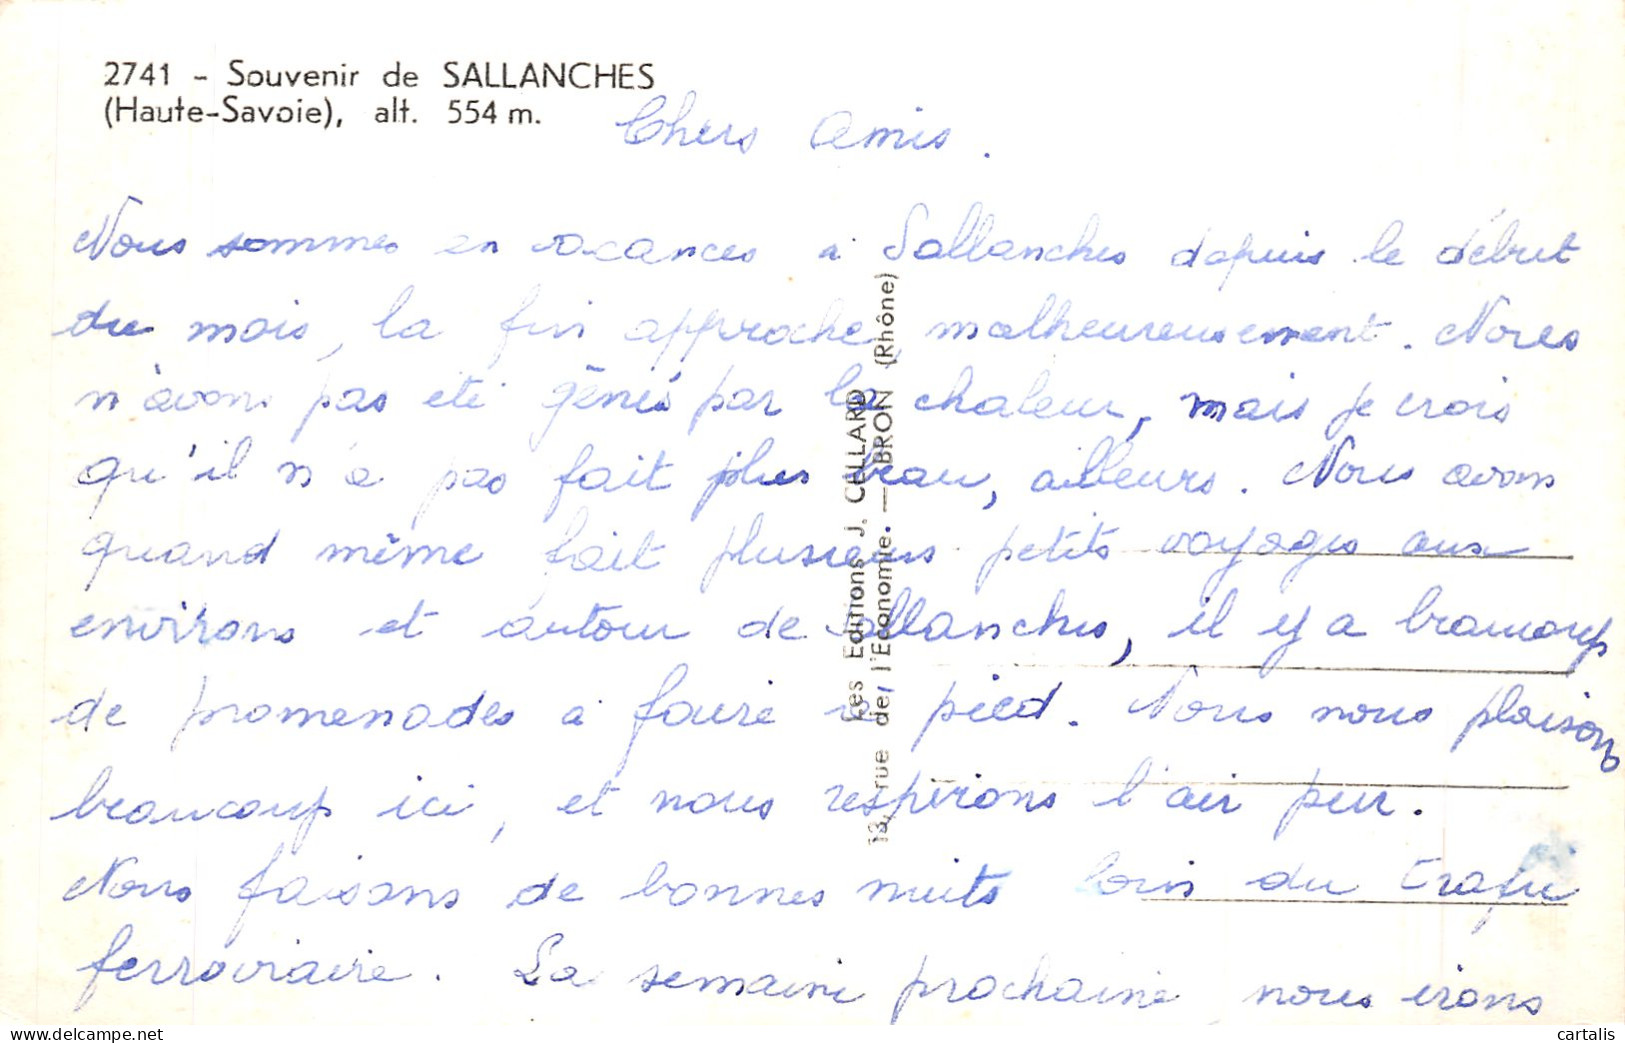 2741 - Souvenir de SALLANCHES
(Haute-Savoie), alt. 554 m.
Chers Amis.
Nous sommes en vacances à Sallanches depuis le début
du mois, la fin approche, malheureusement. Nous
n'avons pas été gênés par la chaleur, mais je crois
qu'il n'a pas fait plus beau, ailleurs. Nous avons
quand même fait plusieurs petits voyages aux
environs et autour de Sallanches, il y a beaucoup
de promenades à faire à pied. Nous nous plaisons
beaucoup ici, et nous respirons l'air pur.
Nous faisons de bonnes nuits loin du trafic
ferroviaire. La semaine prochaine nous irons
Les Editions J. CELLARD
13, rue de l'Economie. — BRON (Rhône)
delcampe.net
cartalis